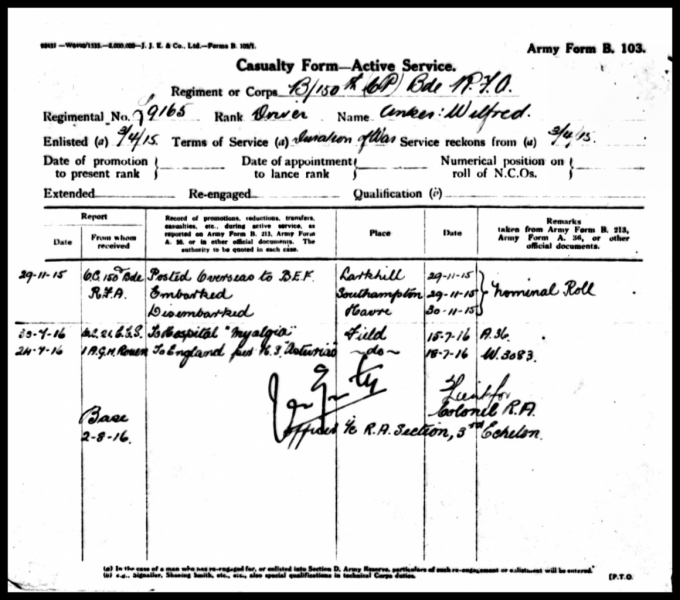 J. J. K. & Co., Ltd.—Forms B. 103/1.
Army Form B. 103.
Casualty Form—Active Service.
Regiment or Corps B/150th (CP) Bde R.F.A.
Regimental No. 9165 Rank Driver Name Wilfred.
Enlisted (a) 3/4/15. Terms of Service (a) Duration of War Service reckons from (a) 3/4/15.
Date of promotion to present rank
Date of appointment to lance rank
Numerical position on roll of N.C.Os.
Extended Re-engaged Qualification (b)
Report
Date
From whom received
Record of promotions, reductions, transfers, casualties, etc., during active service, as reported on Army Form B. 213, Army Form A. 36, or in other official documents. The authority to be quoted in each case.
Place
Date
Remarks
taken from Army Form B. 213, Army Form A. 36, or other official documents.
29-11-15 O.C. 150th Bde Posted Overseas to B.E.F. Larkhill 29-11-15
R.F.A. Embarked Southampton 29-11-15 Nominal Roll
Disembarked Havre 30-11-15
23-7-16 To Hospital "Myalgia" Field 15-7-16 A.36.
24-7-16 1 A.G.H. Rouen To England per H.S. "Asturias" —do— 18-7-16 W.3083.
Lieut for
Base Colonel R.A.
2-8-16. Officer i/c R.A. Section, 3rd Echelon.
(a) In the case of a man who has re-engaged for, or enlisted into Section D. Army Reserve, particulars of such re-engagement or enlistment will be entered.
(b) e.g., Signaller, Shoeing Smith, etc., etc., also special qualifications in technical Corps duties.
[P.T.O.